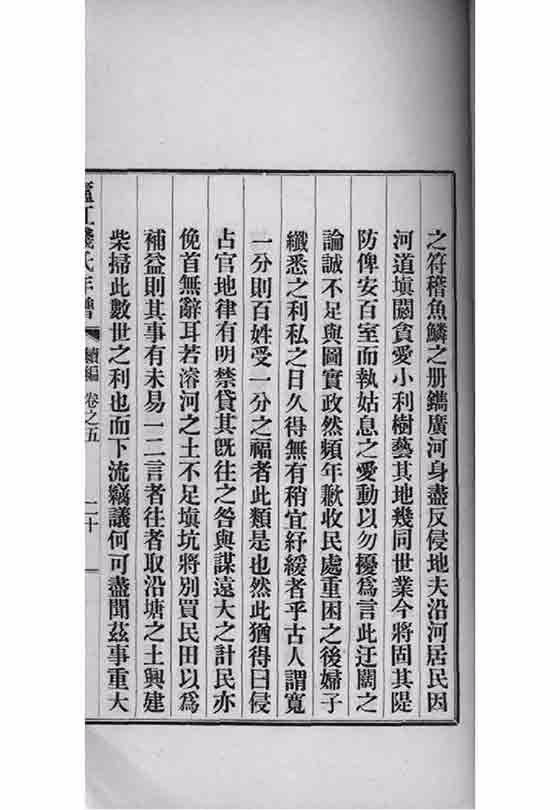 之符稽魚鱗之册鐫廣河身盡反侵地夫沿河居民因
河道塡閼貪愛小利樹藝其地幾同世業今將固其隄
防俾安百室而執姑息之愛動以勿擾爲言此迂闊之
論誠不足與圖實政然頻年歉收民處重困之後婦子
纖悉之利私之日久得無有稍宜紓緩者乎古人謂寬
一分則百姓受一分之福者此類是也然此猶得曰侵
占官地律有明禁貸其旣往之咎與謀遠大之計民亦
俛首無辭耳若濬河之土不足塡坑將別買民田以爲
補益則其事有未易一二言者往者取沿塘之土興建
柴掃此數世之利也而下流竊議何可盡聞茲事重大
廬江錢氏年譜 續編 卷之五 二十